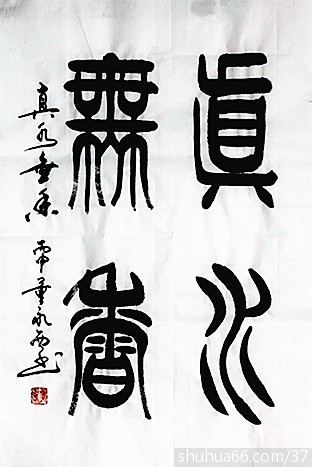 眞水
無香
真水無香
shuhua66.com/37